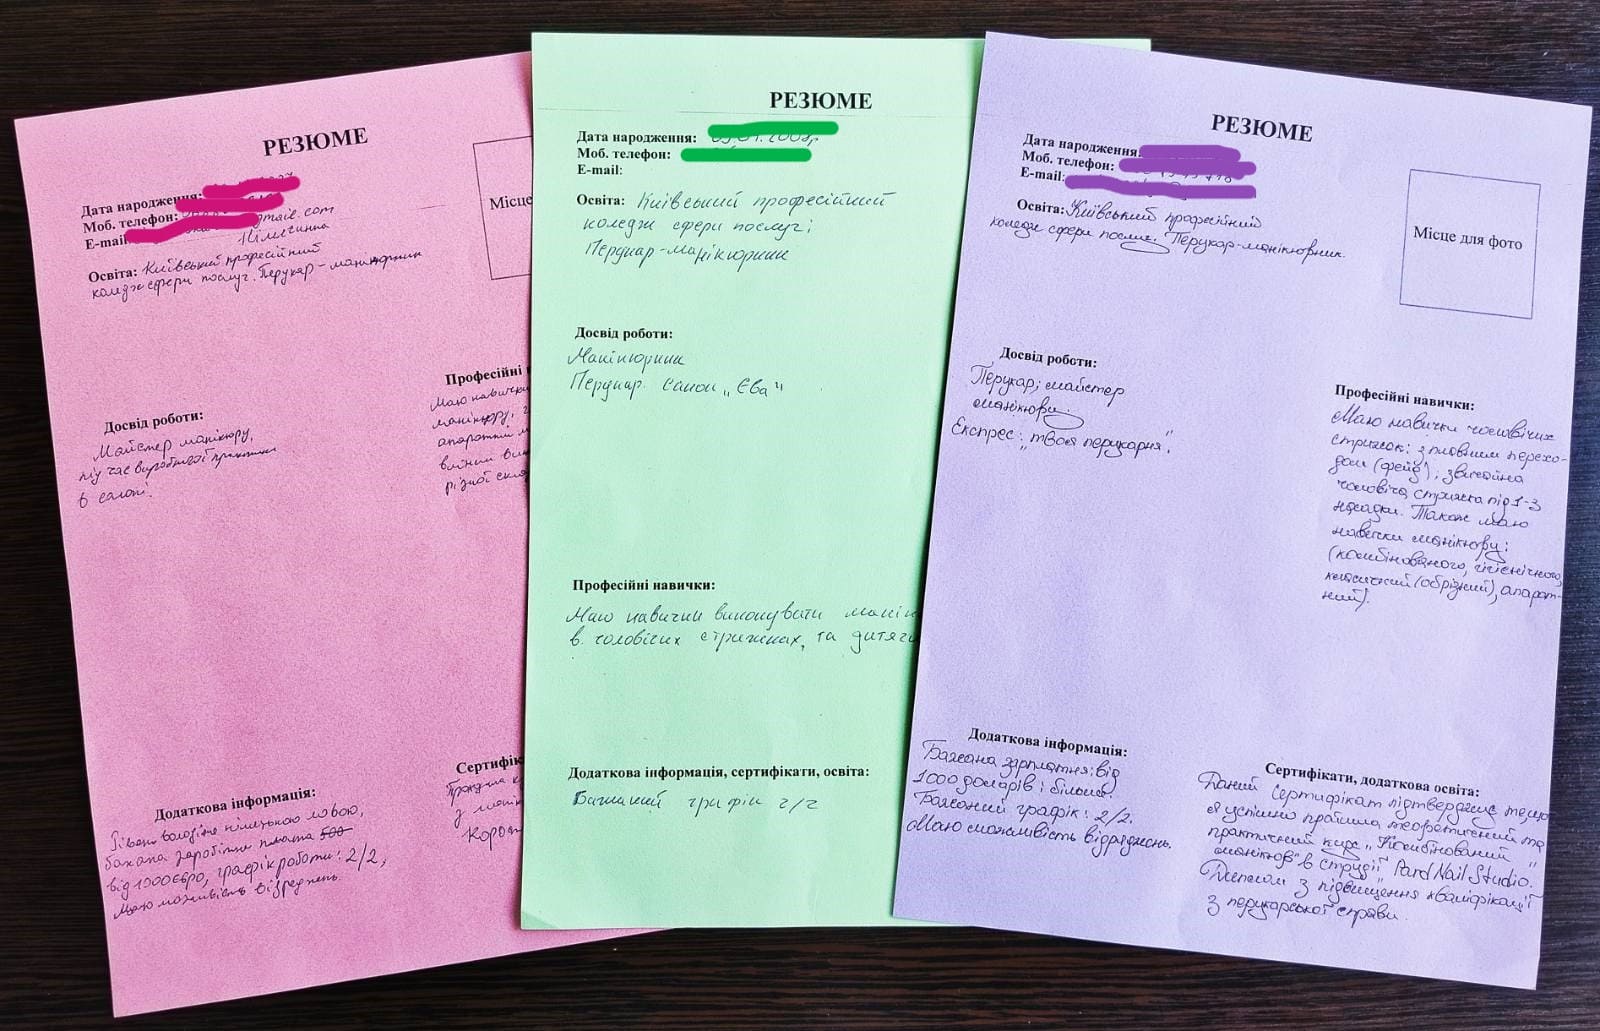 РЕЗЮМЕ
Дата народження:
Моб. телефон:
E-mail
gmail.com
Німеччина
Освіта: Київський професійний
коледж сфери послуг. Перукар-манікюрник
Місце
Досвід роботи:
Майстер манікюру,
під час виробничої практики
в салоні.
Професійні
Маю навички
манікюру;
апаратний м
різної скла
Додаткова інформація:
Рівень володіння німецькою мовою,
бажана заробітна плата 500
від 1000 євро, графік роботи: 2/2,
Маю можливість відряджень.
Сертифік
з манік
РЕЗЮМЕ
Дата народження:
Моб. телефон:
E-mail:
Освіта: Київський професійний
коледж сфери послуг;
Перукар-манікюрник
Досвід роботи:
Манікюрник
Перукар. Салон „Єва"
Професійні навички:
Маю навички виконувати манік
в. чоловічих стрижках, та дитячи
Додаткова інформація, сертифікати, освіта:
Бажаний графік 2/2
РЕЗЮМЕ
Дата народження:
Моб. телефон:
E-mail:
Освіта: Київський професійний
коледж сфери послуг. Перукар-манікюрник.
Місце для фото
Досвід роботи:
Перукар; майстер
манікюру.
Експрес: „твоя перукарня".
Професійні навички:
Маю навички чоловічих
стрижок: з плавним перехо-
дом (фейд); звичайна
чоловіча стрижка під 1-3
насадки. Також маю
навички манікюру:
(комбінованого, гігієнічного,
класичний (обрізний), апарат-
ний).
Додаткова інформація:
Бажана зарплатня: від
1000 доларів і більше.
Бажаний графік: 2/2.
Маю можливість відряджень.
Сертифікати, додаткова освіта:
Даний сертифікат підтверджує те, що
я успішно пройшла теоретичний та
практичний курс „Комбінований
манікюр" в студії „Pard Nail Studio.
Диплом з підвищення кваліфікації
з перукарської справи.